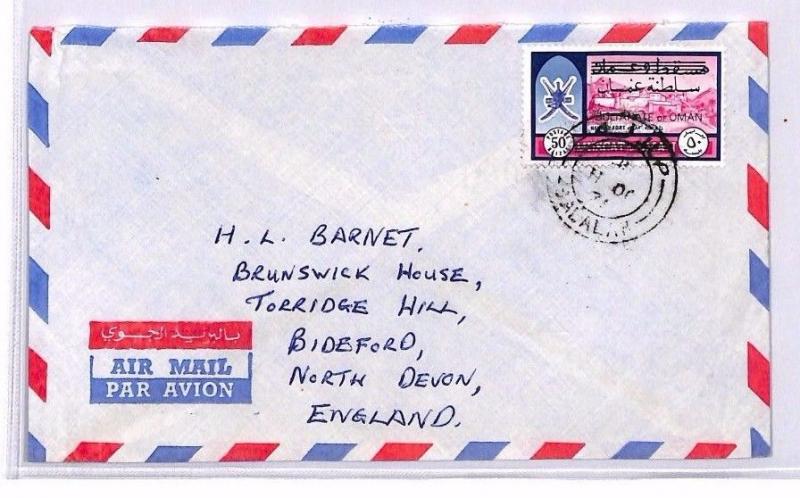 مسقط وعمان
سلطنة عمان
SULTANATE OF OMAN
POSTAGE
50
٥٠
SALALAH
H. L. BARNET,
BRUNSWICK HOUSE,
TORRIDGE HILL,
BIDEFORD,
NORTH DEVON,
ENGLAND.
بالبريد الجوي
AIR MAIL
PAR AVION